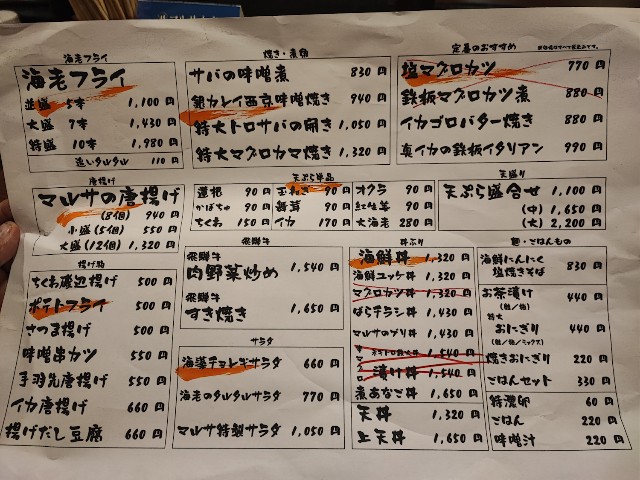 海老フライ
海老フライ
並盛 5本 1,100 円
大盛 7本 1,430 円
特盛 10本 1,980 円
追いタルタル 110 円
焼き・煮物
サバの味噌煮 830 円
銀カレイ西京味噌焼き 940 円
特大トロサバの開き 1,050 円
特大マグロカマ焼き 1,320 円
定番のおすすめ
塩マグロカツ 770 円
鉄板マグロカツ煮 880 円
イカゴロバター焼き 880 円
真イカの鉄板イタリアン 990 円
唐揚げ
マルサの唐揚げ
(8個) 940 円
小盛(5個) 550 円
大盛(12個) 1,320 円
天ぷら単品
蓮根 90 円
かぼちゃ 90 円
ちくわ 150 円
玉ねぎ 90 円
舞茸 90 円
イカ 170 円
オクラ 90 円
紅生姜 90 円
大海老 280 円
天ぷら盛り
天ぷら盛合せ 1,100 円
(中) 1,650 円
(大) 2,200 円
揚げ物
ちくわ磯辺揚げ 500 円
ポテトフライ 500 円
さつま揚げ 500 円
味噌串カツ 550 円
手羽先唐揚げ 550 円
イカ唐揚げ 660 円
揚げだし豆腐 660 円
飛騨牛
飛騨牛
肉野菜炒め 1,540 円
飛騨牛
すき焼き 1,650 円
サラダ
海藻チョレギサラダ 660 円
海老のタルタルサラダ 770 円
マルサ特製サラダ 1,050 円
丼ぶり
海鮮丼 1,320 円
海鮮ユッケ丼 1,320 円
マグロカツ丼 1,320 円
ばらチラシ丼 1,430 円
マルサのブリ丼 1,430 円
1,540 円
漬け丼 1,540 円
煮あなご丼 1,650 円
天丼 1,320 円
上天丼 1,650 円
麺・ごはんもの
海鮮にんにく
塩焼きそば 830 円
お茶漬け 440 円
特大
おにぎり 440 円
焼きおにぎり 220 円
ごはんセット 330 円
特濃卵 60 円
ごはん 220 円
味噌汁 220 円